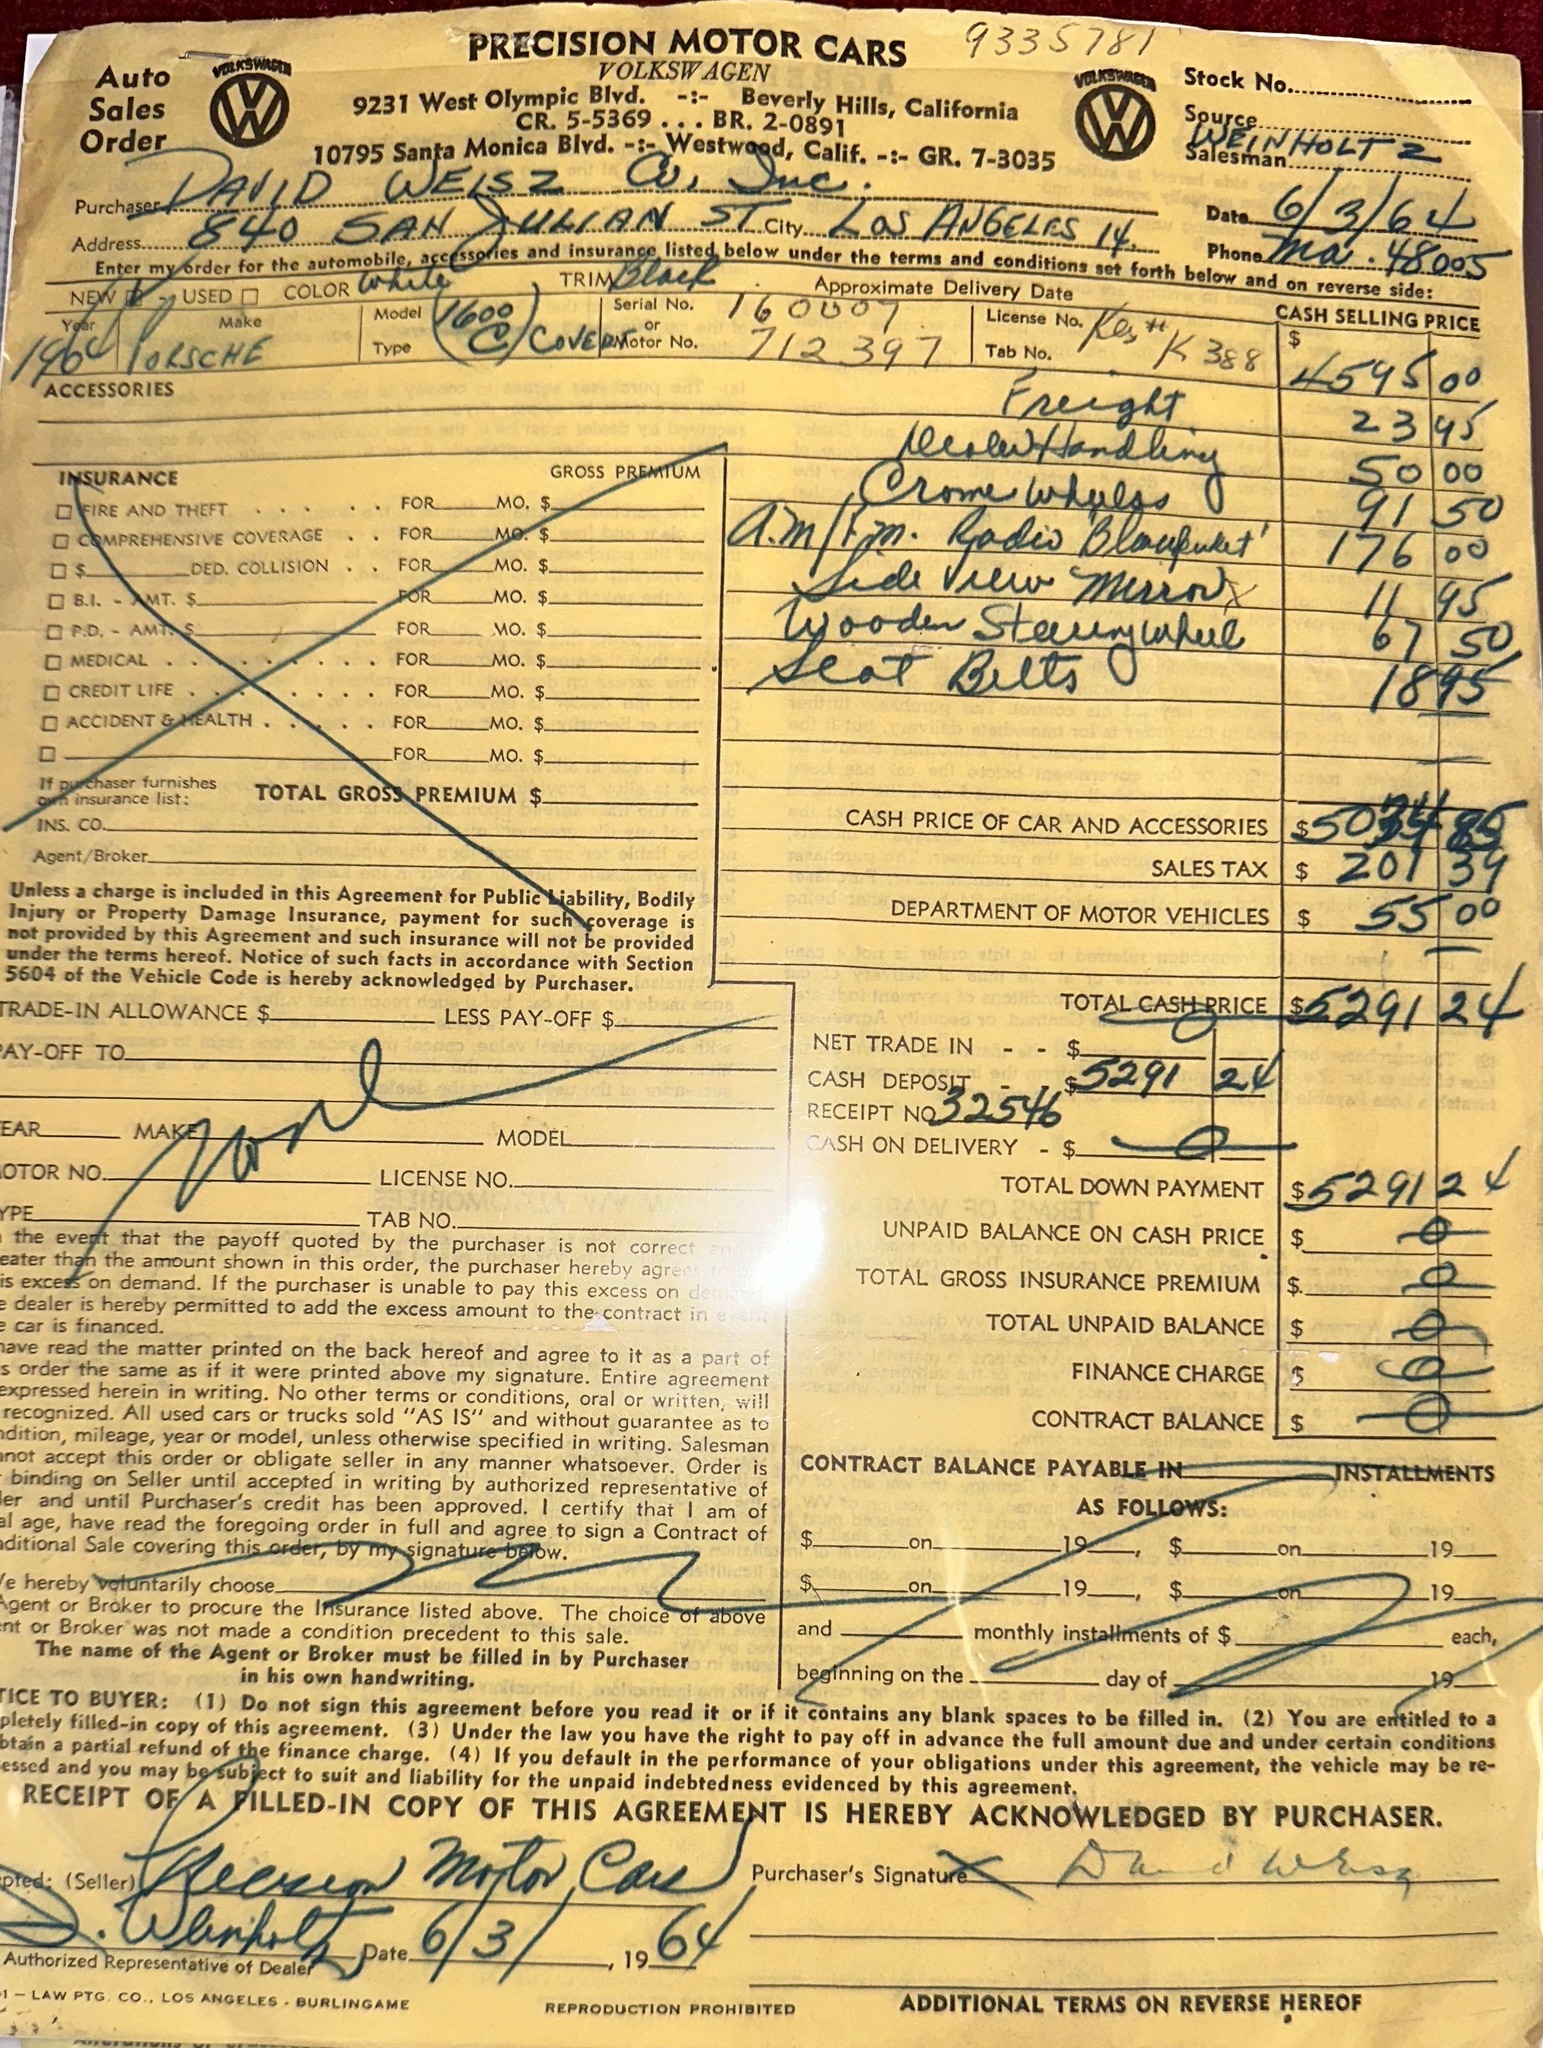 PRECISION MOTOR CARS
9335781
VOLKSWAGEN
Auto Sales Order
VOLKSWAGEN
VOLKSWAGEN
9231 West Olympic Blvd. -:- Beverly Hills, California
CR. 5-5369 . . . BR. 2-0891
10795 Santa Monica Blvd. -:- Westwood, Calif. -:- GR. 7-3035
Stock No.
Source
Salesman WEINHOLTZ
Purchaser DAVID WEISZ Co, Inc.
Date 6/3/64
Address 840 SAN JULIAN ST City LOS ANGELES 14.
Phone Ma. 48005
Enter my order for the automobile, accessories and insurance listed below under the terms and conditions set forth below and on reverse side:
NEW USED COLOR White TRIM Black Approximate Delivery Date
Year 1964 Make PORSCHE Model Type (1600 C) COVERT Serial No. 160007 or Motor No. 712397 License No. Tab No. Res # K388
CASH SELLING PRICE
$ 4595 00
ACCESSORIES
Freight 23 95
Dealer Handling 50 00
Crome Wheels 91 50
A.M/F.M. Radio 'Blaupunkt' 176 00
Side View Mirror 11 95
Wooden Steering Wheel 67 50
Seat Belts 18 95
INSURANCE GROSS PREMIUM
FIRE AND THEFT . . . . . . FOR MO. $
COMPREHENSIVE COVERAGE . . FOR MO. $
$ DED. COLLISION . . FOR MO. $
B.I. - AMT. $ FOR MO. $
P.D. - AMT. $ FOR MO. $
MEDICAL . . . . . . . . FOR MO. $
CREDIT LIFE . . . . . . . FOR MO. $
ACCIDENT & HEALTH . . . . FOR MO. $
FOR MO. $
If purchaser furnishes own insurance list: TOTAL GROSS PREMIUM $
INS. CO.
Agent/Broker
CASH PRICE OF CAR AND ACCESSORIES $
SALES TAX $ 201 39
DEPARTMENT OF MOTOR VEHICLES $ 55 00
Unless a charge is included in this Agreement for Public Liability, Bodily
Injury or Property Damage Insurance, payment for such coverage is
not provided by this Agreement and such insurance will not be provided
under the terms hereof. Notice of such facts in accordance with Section
5604 of the Vehicle Code is hereby acknowledged by Purchaser.
TOTAL CASH PRICE $ 5291 24
TRADE-IN ALLOWANCE $ LESS PAY-OFF $
PAY-OFF TO
None
EAR MAKE MODEL
OTOR NO. LICENSE NO.
YPE TAB NO.
NET TRADE IN - - $ 0
CASH DEPOSIT - $ 5291 24
RECEIPT NO 32546
CASH ON DELIVERY - $ 0
TOTAL DOWN PAYMENT $ 5291 24
UNPAID BALANCE ON CASH PRICE $ 0
TOTAL GROSS INSURANCE PREMIUM $ 0
TOTAL UNPAID BALANCE $ 0
FINANCE CHARGE $ 0
CONTRACT BALANCE $ 0
the event that the payoff quoted by the purchaser is not correct
eater than the amount shown in this order, the purchaser hereby agrees
is excess on demand. If the purchaser is unable to pay this excess on
e dealer is hereby permitted to add the excess amount to the contract in event
e car is financed.
have read the matter printed on the back hereof and agree to it as a part of
s order the same as if it were printed above my signature. Entire agreement
expressed herein in writing. No other terms or conditions, oral or written, will
recognized. All used cars or trucks sold "AS IS" and without guarantee as to
ndition, mileage, year or model, unless otherwise specified in writing. Salesman
nnot accept this order or obligate seller in any manner whatsoever. Order is
binding on Seller until accepted in writing by authorized representative of
ler and until Purchaser's credit has been approved. I certify that I am of
al age, have read the foregoing order in full and agree to sign a Contract of
nditional Sale covering this order, by my signature below.
We hereby voluntarily choose
Agent or Broker to procure the Insurance listed above. The choice of above
ent or Broker was not made a condition precedent to this sale.
The name of the Agent or Broker must be filled in by Purchaser
in his own handwriting.
CONTRACT BALANCE PAYABLE IN INSTALLMENTS
AS FOLLOWS:
$ on 19 , $ on 19
$ on 19 , $ on 19
and monthly installments of $ each,
beginning on the day of 19
TICE TO BUYER: (1) Do not sign this agreement before you read it or if it contains any blank spaces to be filled in. (2) You are entitled to a
pletely filled-in copy of this agreement. (3) Under the law you have the right to pay off in advance the full amount due and under certain conditions
btain a partial refund of the finance charge. (4) If you default in the performance of your obligations under this agreement, the vehicle may be re-
essed and you may be subject to suit and liability for the unpaid indebtedness evidenced by this agreement.
RECEIPT OF A FILLED-IN COPY OF THIS AGREEMENT IS HEREBY ACKNOWLEDGED BY PURCHASER.
pted: (Seller) Precision Motor Cars
Purchaser's Signature X David Weisz
D. Weinholtz Date 6/3/, 1964
Authorized Representative of Dealer
01 — LAW PTG. CO., LOS ANGELES - BURLINGAME REPRODUCTION PROHIBITED ADDITIONAL TERMS ON REVERSE HEREOF